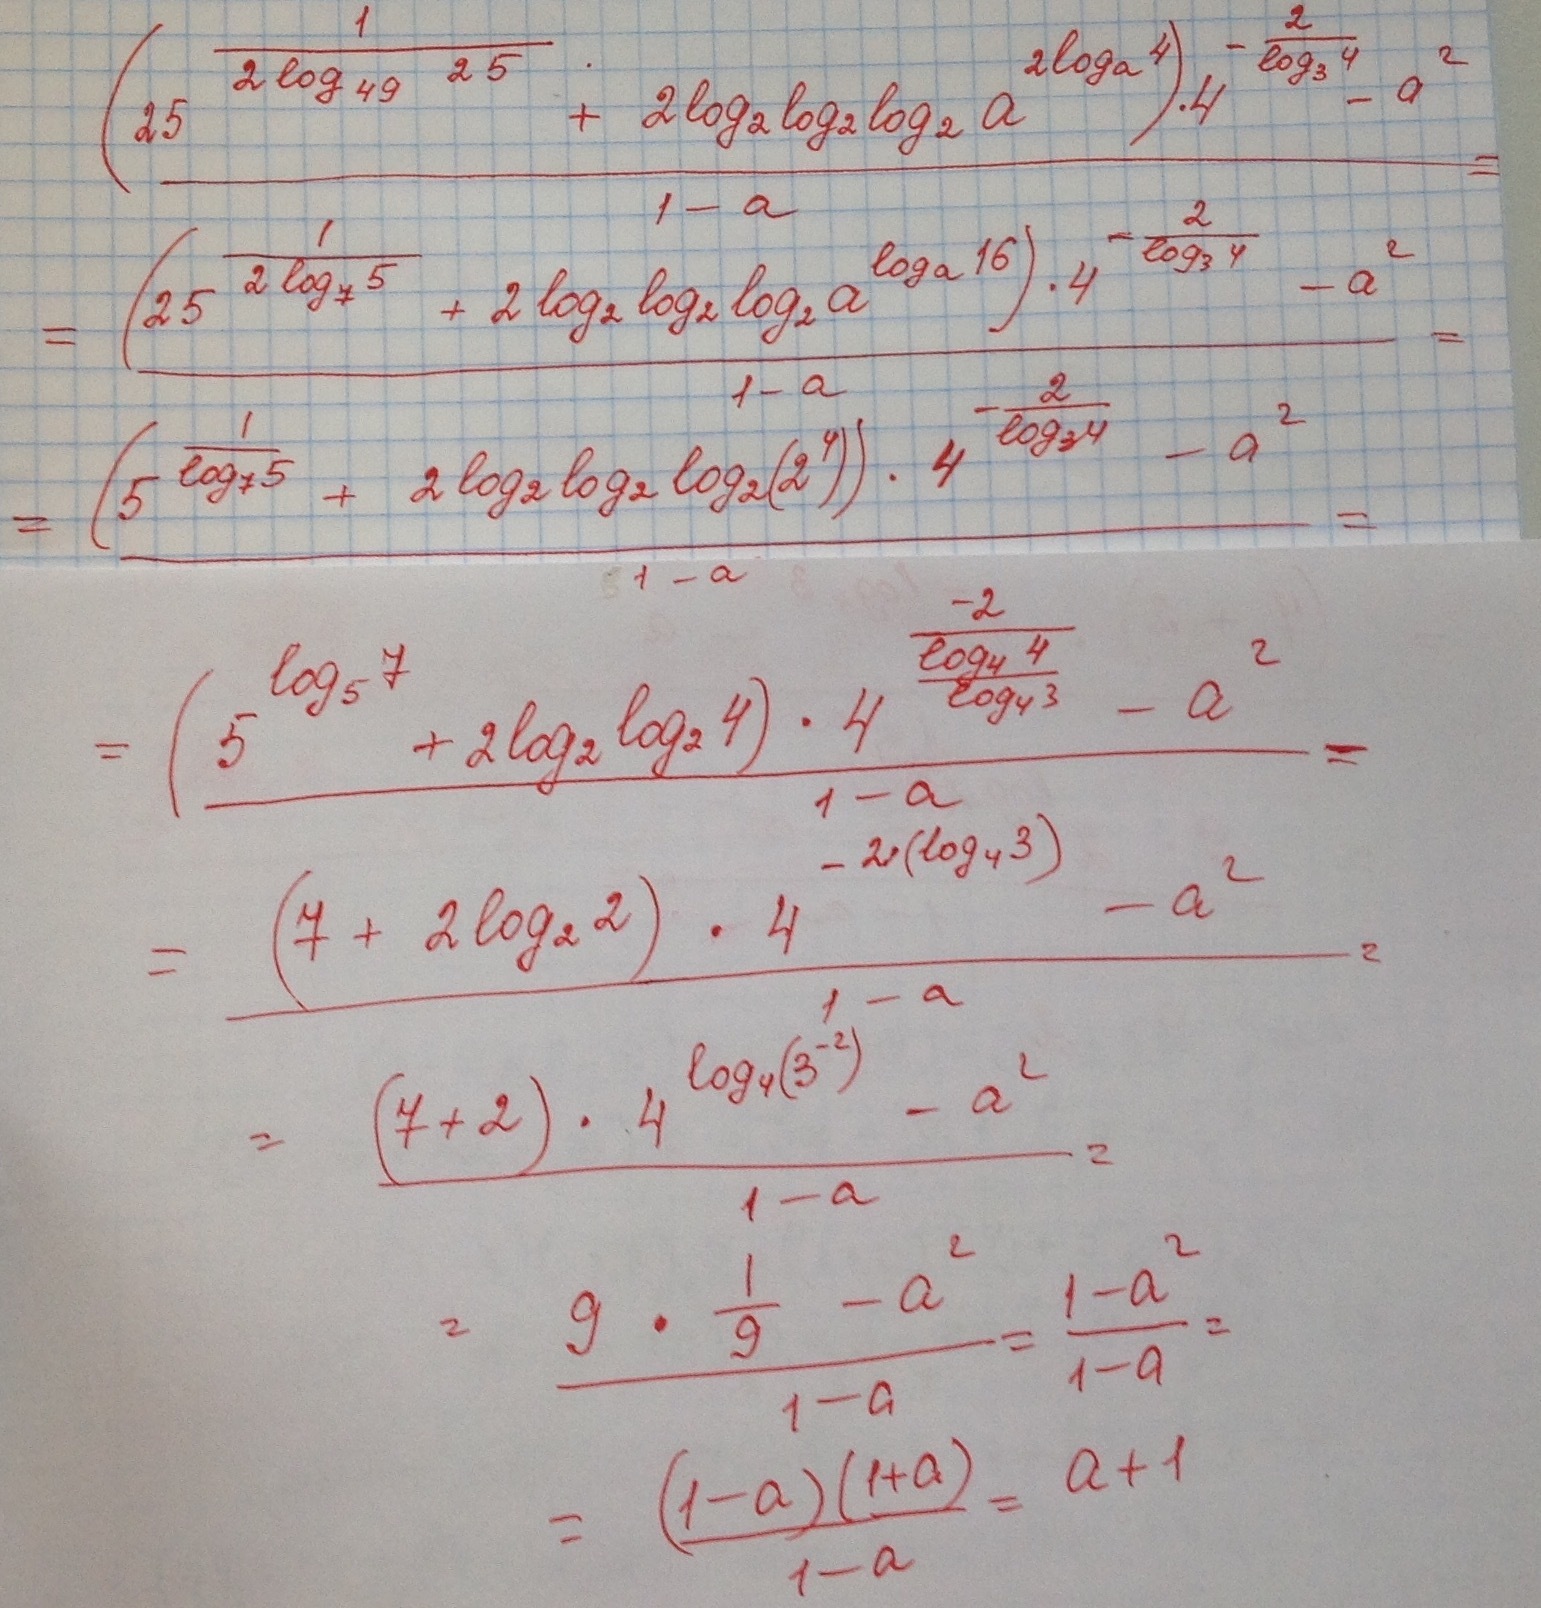 (25^(1/(2log₄₉ 25)) + 2log₂log₂log₂ a^(2logₐ4)) · 4^(-2/(log₃4)) - a²
/ (1 - a) =
= ((25^(1/(2log₇5)) + 2log₂log₂log₂ a^(logₐ16)) · 4^(-2/(log₃4)) - a²) / (1 - a) =
= ((5^(1/(log₇5)) + 2log₂log₂log₂(2⁴)) · 4^(-2/(log₃4)) - a²) / (1 - a) =
= ((5^(log₅7) + 2log₂log₂4) · 4^(-2/(log₄4/log₄3)) - a²) / (1 - a) =
= ((7 + 2log₂2) · 4^(-2·(log₄3)) - a²) / (1 - a) =
= ((7+2) · 4^(log₄(3⁻²)) - a²) / (1 - a) =
= (9 · 1/9 - a²) / (1 - a) = (1-a²) / (1-a) =
= ((1-a)(1+a)) / (1-a) = a+1